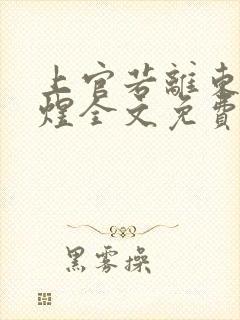 上官若離東
煌全文免費
黑雾操